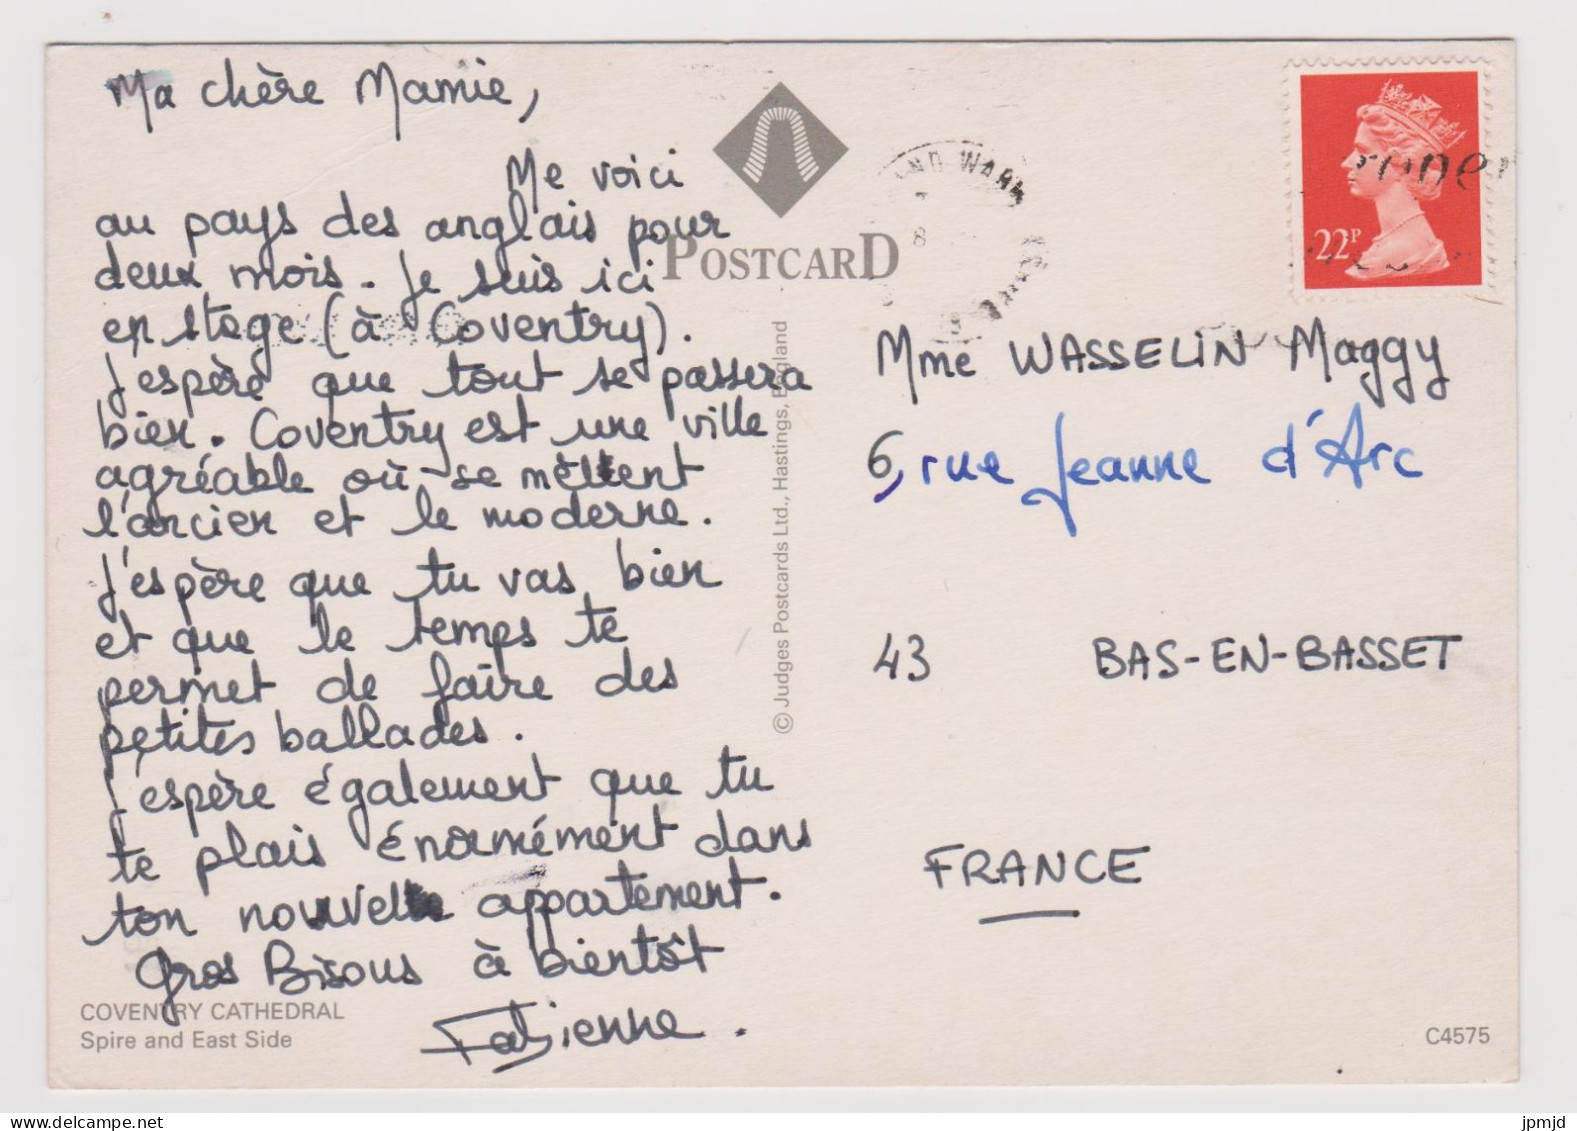 Ma chère Mamie,
Me voici
au pays des anglais pour
deux mois. Je suis ici
en stage (à Coventry).
J'espère que tout se passera
bien. Coventry est une ville
agréable où se mêlent
l'ancien et le moderne.
J'espère que tu vas bien
et que le temps te
permet de faire des
petites ballades.
J'espère également que tu
te plais énormément dans
ton nouvel appartement.
Gros Bisous à bientôt
Fabienne.
COVENTRY CATHEDRAL
Spire and East Side
POSTCARD
© Judges Postcards Ltd., Hastings, England
AND WARW
22P
Mme WASSELIN Maggy
6, rue Jeanne d'Arc
43 BAS-EN-BASSET
FRANCE
C4575
jpmjd